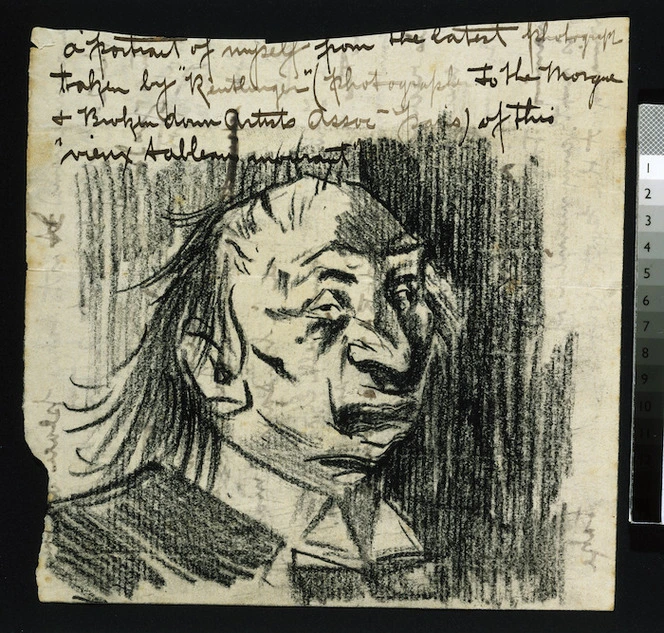 a portrait of myself from the latest photograph
taken by "Reutlinger" (Photographer to the Morgue
& Broken down Artists Assoc - Paris) of this
"vieux tableau mourant"
1
2
3
4
5
6
7
8
9
10
11